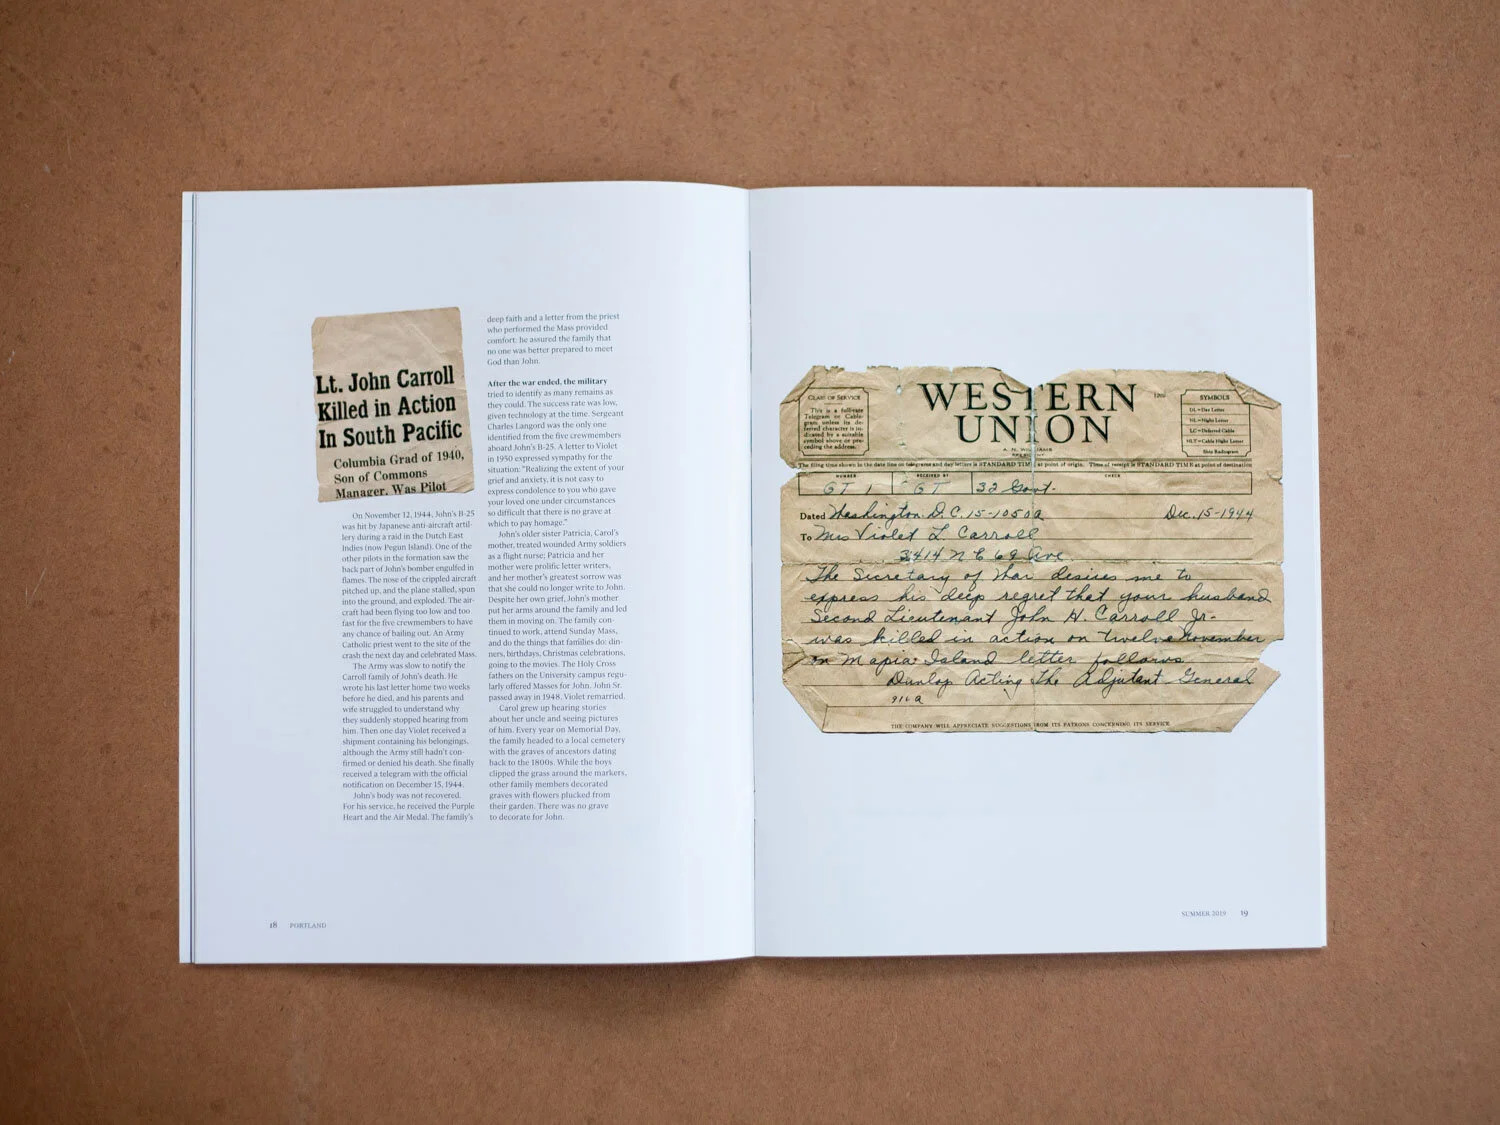 Lt. John Carroll
Killed in Action
In South Pacific
Columbia Grad of 1940,
Son of Commons
Manager, Was Pilot
On November 12, 1944, John's B-25
was hit by Japanese anti-aircraft artil-
lery during a raid in the Dutch East
Indies (now Pegun Island). One of the
other pilots in the formation saw the
back part of John's bomber engulfed in
flames. The nose of the crippled aircraft
pitched up, and the plane stalled, spun
into the ground, and exploded. The air-
craft had been flying too low and too
fast for the five crewmembers to have
any chance of bailing out. An Army
Catholic priest went to the site of the
crash the next day and celebrated Mass.
The Army was slow to notify the
Carroll family of John's death. He
wrote his last letter home two weeks
before he died, and his parents and
wife struggled to understand why
they suddenly stopped hearing from
him. Then one day Violet received a
shipment containing his belongings,
although the Army still hadn't con-
firmed or denied his death. She finally
received a telegram with the official
notification on December 15, 1944.
John's body was not recovered.
For his service, he received the Purple
Heart and the Air Medal. The family's
deep faith and a letter from the priest
who performed the Mass provided
comfort: he assured the family that
no one was better prepared to meet
God than John.
After the war ended, the military
tried to identify as many remains as
they could. The success rate was low,
given technology at the time. Sergeant
Charles Langord was the only one
identified from the five crewmembers
aboard John's B-25. A letter to Violet
in 1950 expressed sympathy for the
situation: "Realizing the extent of your
grief and anxiety, it is not easy to
express condolence to you who gave
your loved one under circumstances
so difficult that there is no grave at
which to pay homage."
John's older sister Patricia, Carol's
mother, treated wounded Army soldiers
as a flight nurse; Patricia and her
mother were prolific letter writers,
and her mother's greatest sorrow was
that she could no longer write to John.
Despite her own grief, John's mother
put her arms around the family and led
them in moving on. The family con-
tinued to work, attend Sunday Mass,
and do the things that families do: din-
ners, birthdays, Christmas celebrations,
going to the movies. The Holy Cross
fathers on the University campus regu-
larly offered Masses for John. John Sr.
passed away in 1948. Violet remarried.
Carol grew up hearing stories
about her uncle and seeing pictures
of him. Every year on Memorial Day,
the family headed to a local cemetery
with the graves of ancestors dating
back to the 1800s. While the boys
clipped the grass around the markers,
other family members decorated
graves with flowers plucked from
their garden. There was no grave
to decorate for John.
18 PORTLAND
CLASS OF SERVICE
This is a full-rate
Telegram or Cable-
gram unless its de-
ferred character is in-
dicated by a suitable
symbol above or pre-
ceding the address.
WESTERN
UNION
1201
A. N. WILLIAMS
PRESIDENT
SYMBOLS
DL=Day Letter
NL=Night Letter
LC=Deferred Cable
NLT=Cable Night Letter
Ship Radiogram
The filing time shown in the date line on telegrams and day letters is STANDARD TIME at point of origin. Time of receipt is STANDARD TIME at point of destination
NUMBER RECEIVED BY CHECK
GT 1 GT 32 Govt.
Dated Washington D.C. 15-1050a Dec. 15-1944
To Mrs Violet L. Carroll
3414 N E 69 Ave
The Secretary of War desires me to
express his deep regret that your husband
Second Lieutenant John H. Carroll Jr-
was killed in action on twelve November
on Mapia Island letter follows
Dunlop Acting The Adjutant General
911a
THE COMPANY WILL APPRECIATE SUGGESTIONS FROM ITS PATRONS CONCERNING ITS SERVICE
SUMMER 2019 19